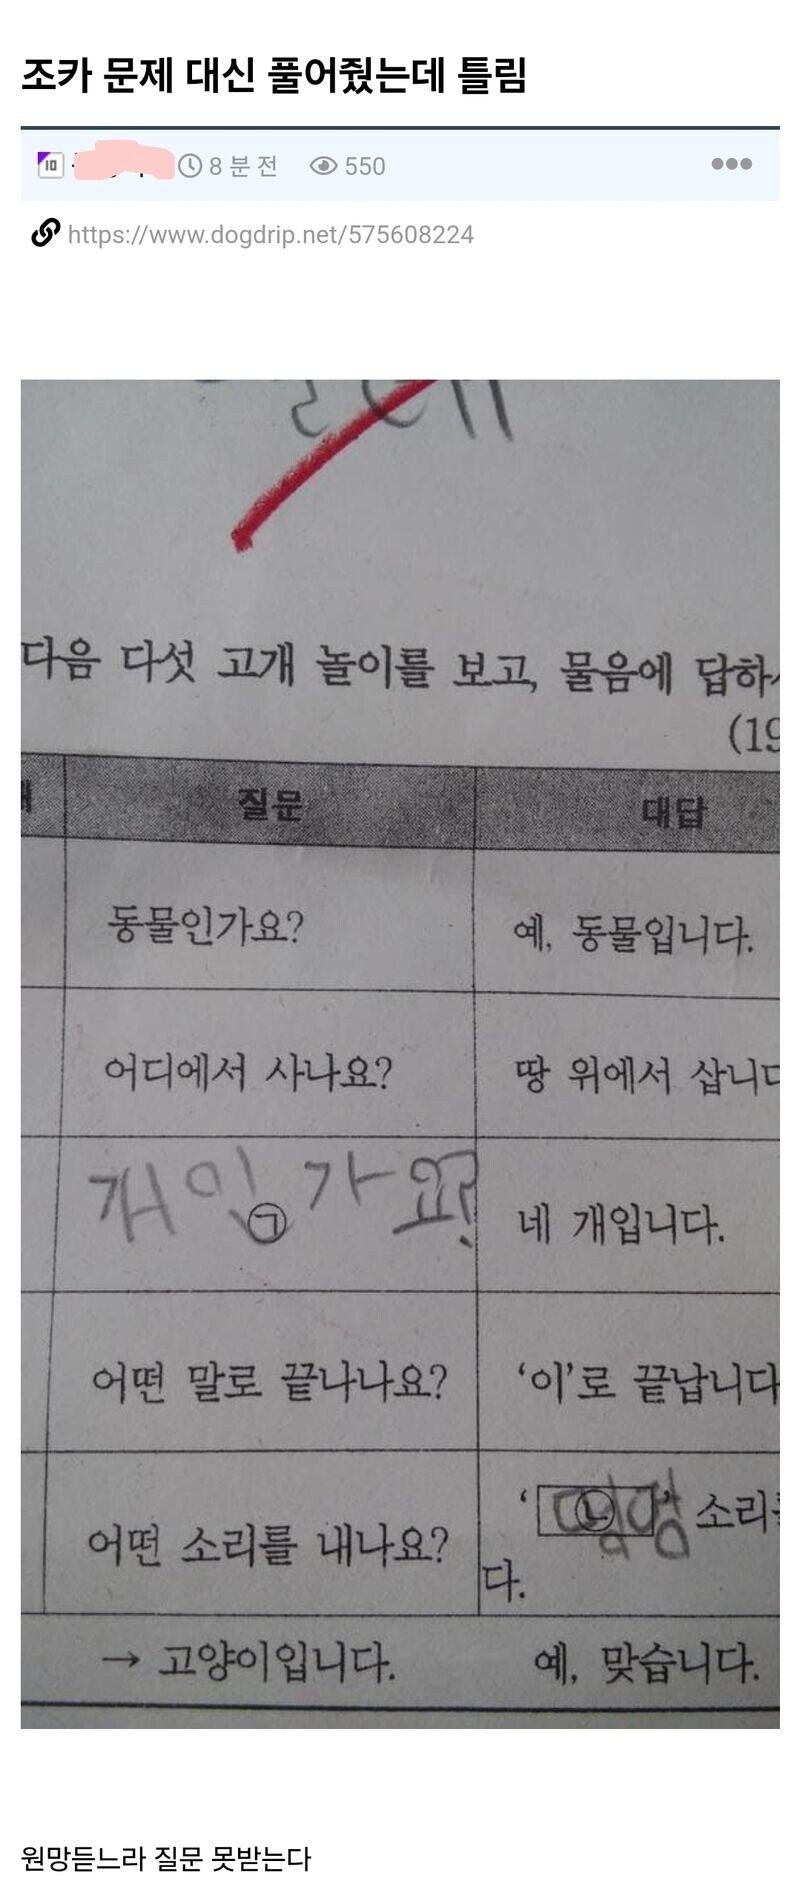 조카 문제 대신 풀어줬는데 틀림
8 분 전 550
https://www.dogdrip.net/575608224
다음 다섯 고개 놀이를 보고, 물음에 답하
(19
질문 대답
동물인가요? 예, 동물입니다.
어디에서 사나요? 땅 위에서 삽니다
개인가요? ㉠ 네 개입니다.
어떤 말로 끝나나요? '이'로 끝납니다
어떤 소리를 내나요? '㉡' 소리를
다.
→ 고양이입니다. 예, 맞습니다.
원망듣느라 질문 못받는다